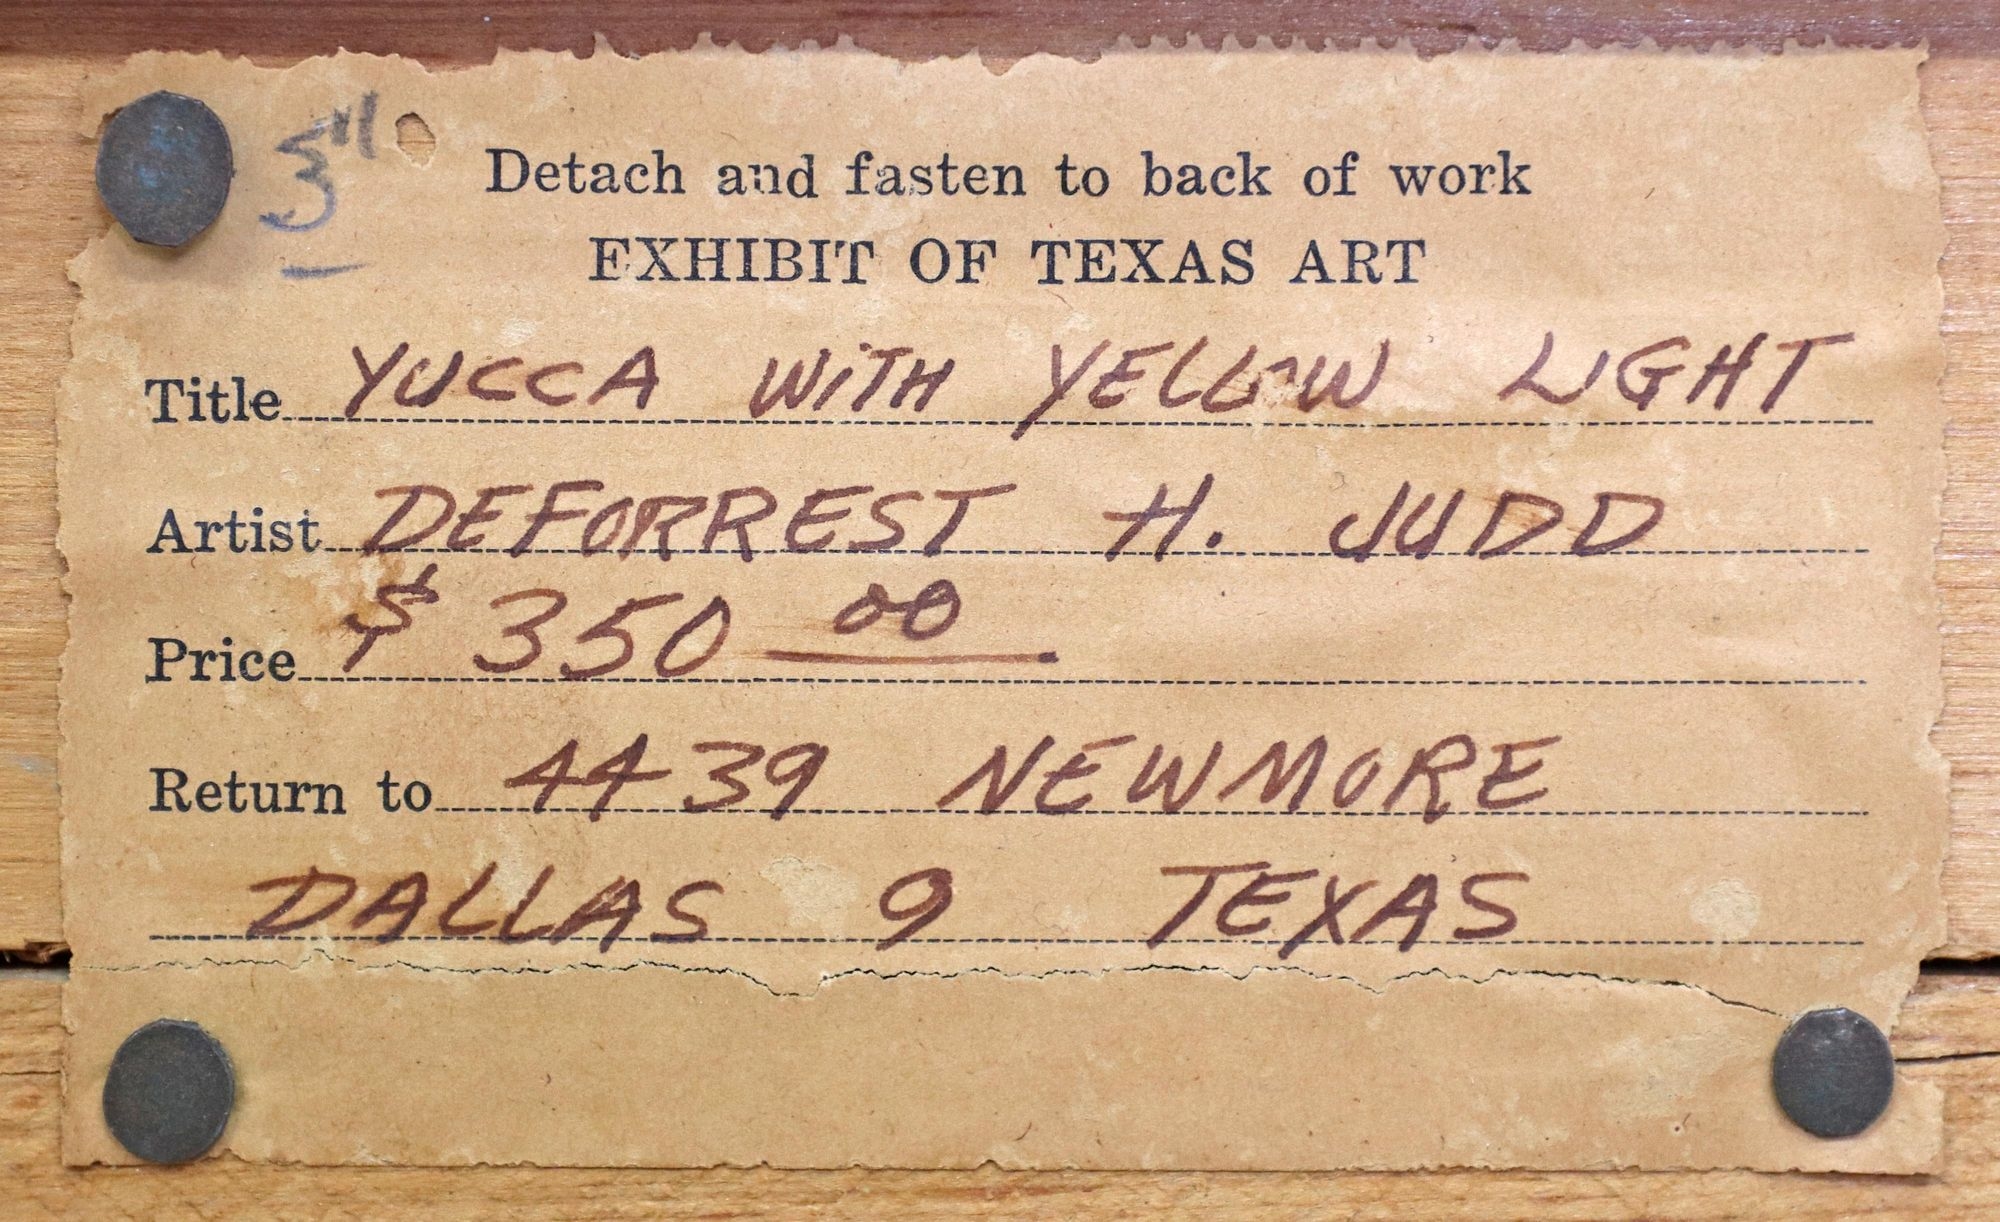 3"
Detach and fasten to back of work
EXHIBIT OF TEXAS ART
Title YUCCA WiTH YELLOW LIGHT
Artist DEFORREST H. JUDD
Price $ 350 00
Return to 4439 NEWMORE
DALLAS 9 TEXAS